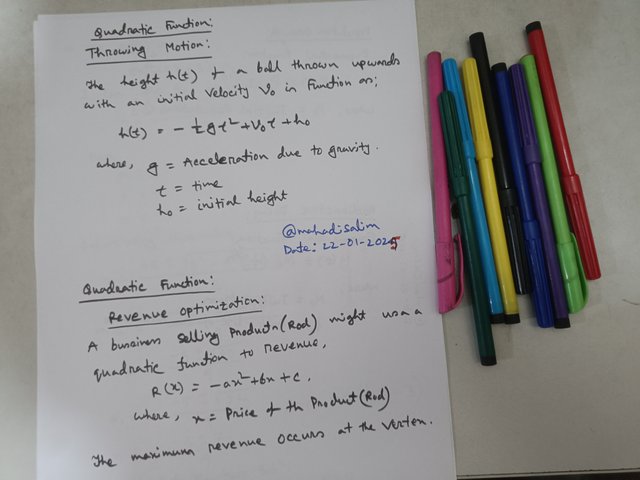 Quadratic Function:
Throwing Motion:
The height h(t) of a ball thrown upwards
with an initial velocity V₀ in Function as;
h(t) = - ½gt² + V₀t + h₀
where, g = Acceleration due to gravity.
t = time
h₀ = initial height
@mahadisalim
Date: 22-01-2025
Quadratic Function:
Revenue optimization:
A business selling Products (Rod) might use a
quadratic function to revenue,
R(x) = -ax² + bx + c,
where, x = Price of the Product (Rod)
The maximum revenue occurs at the vertex.